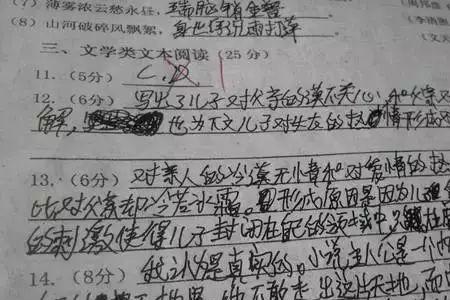 (7) 薄雾浓云愁永昼,瑞脑销金兽
(8) 山河破碎风飘絮,身世浮沉雨打萍
三、文学类文本阅读(25分)
11.(5分) C.D
12.(6分) 写出了儿子对父亲的漠不关心,和父亲
解, 也为下文儿子对女友的热情形成对
13.(6分) 对亲人的冷漠无情和对爱情的热
比对父亲却冷若冰霜。形成原因是因为儿
的刺激使得儿子封闭在自己的领域中,
14.(8分) 我认为是真实的。小说主人公是一个
不敢走出这片天地,而